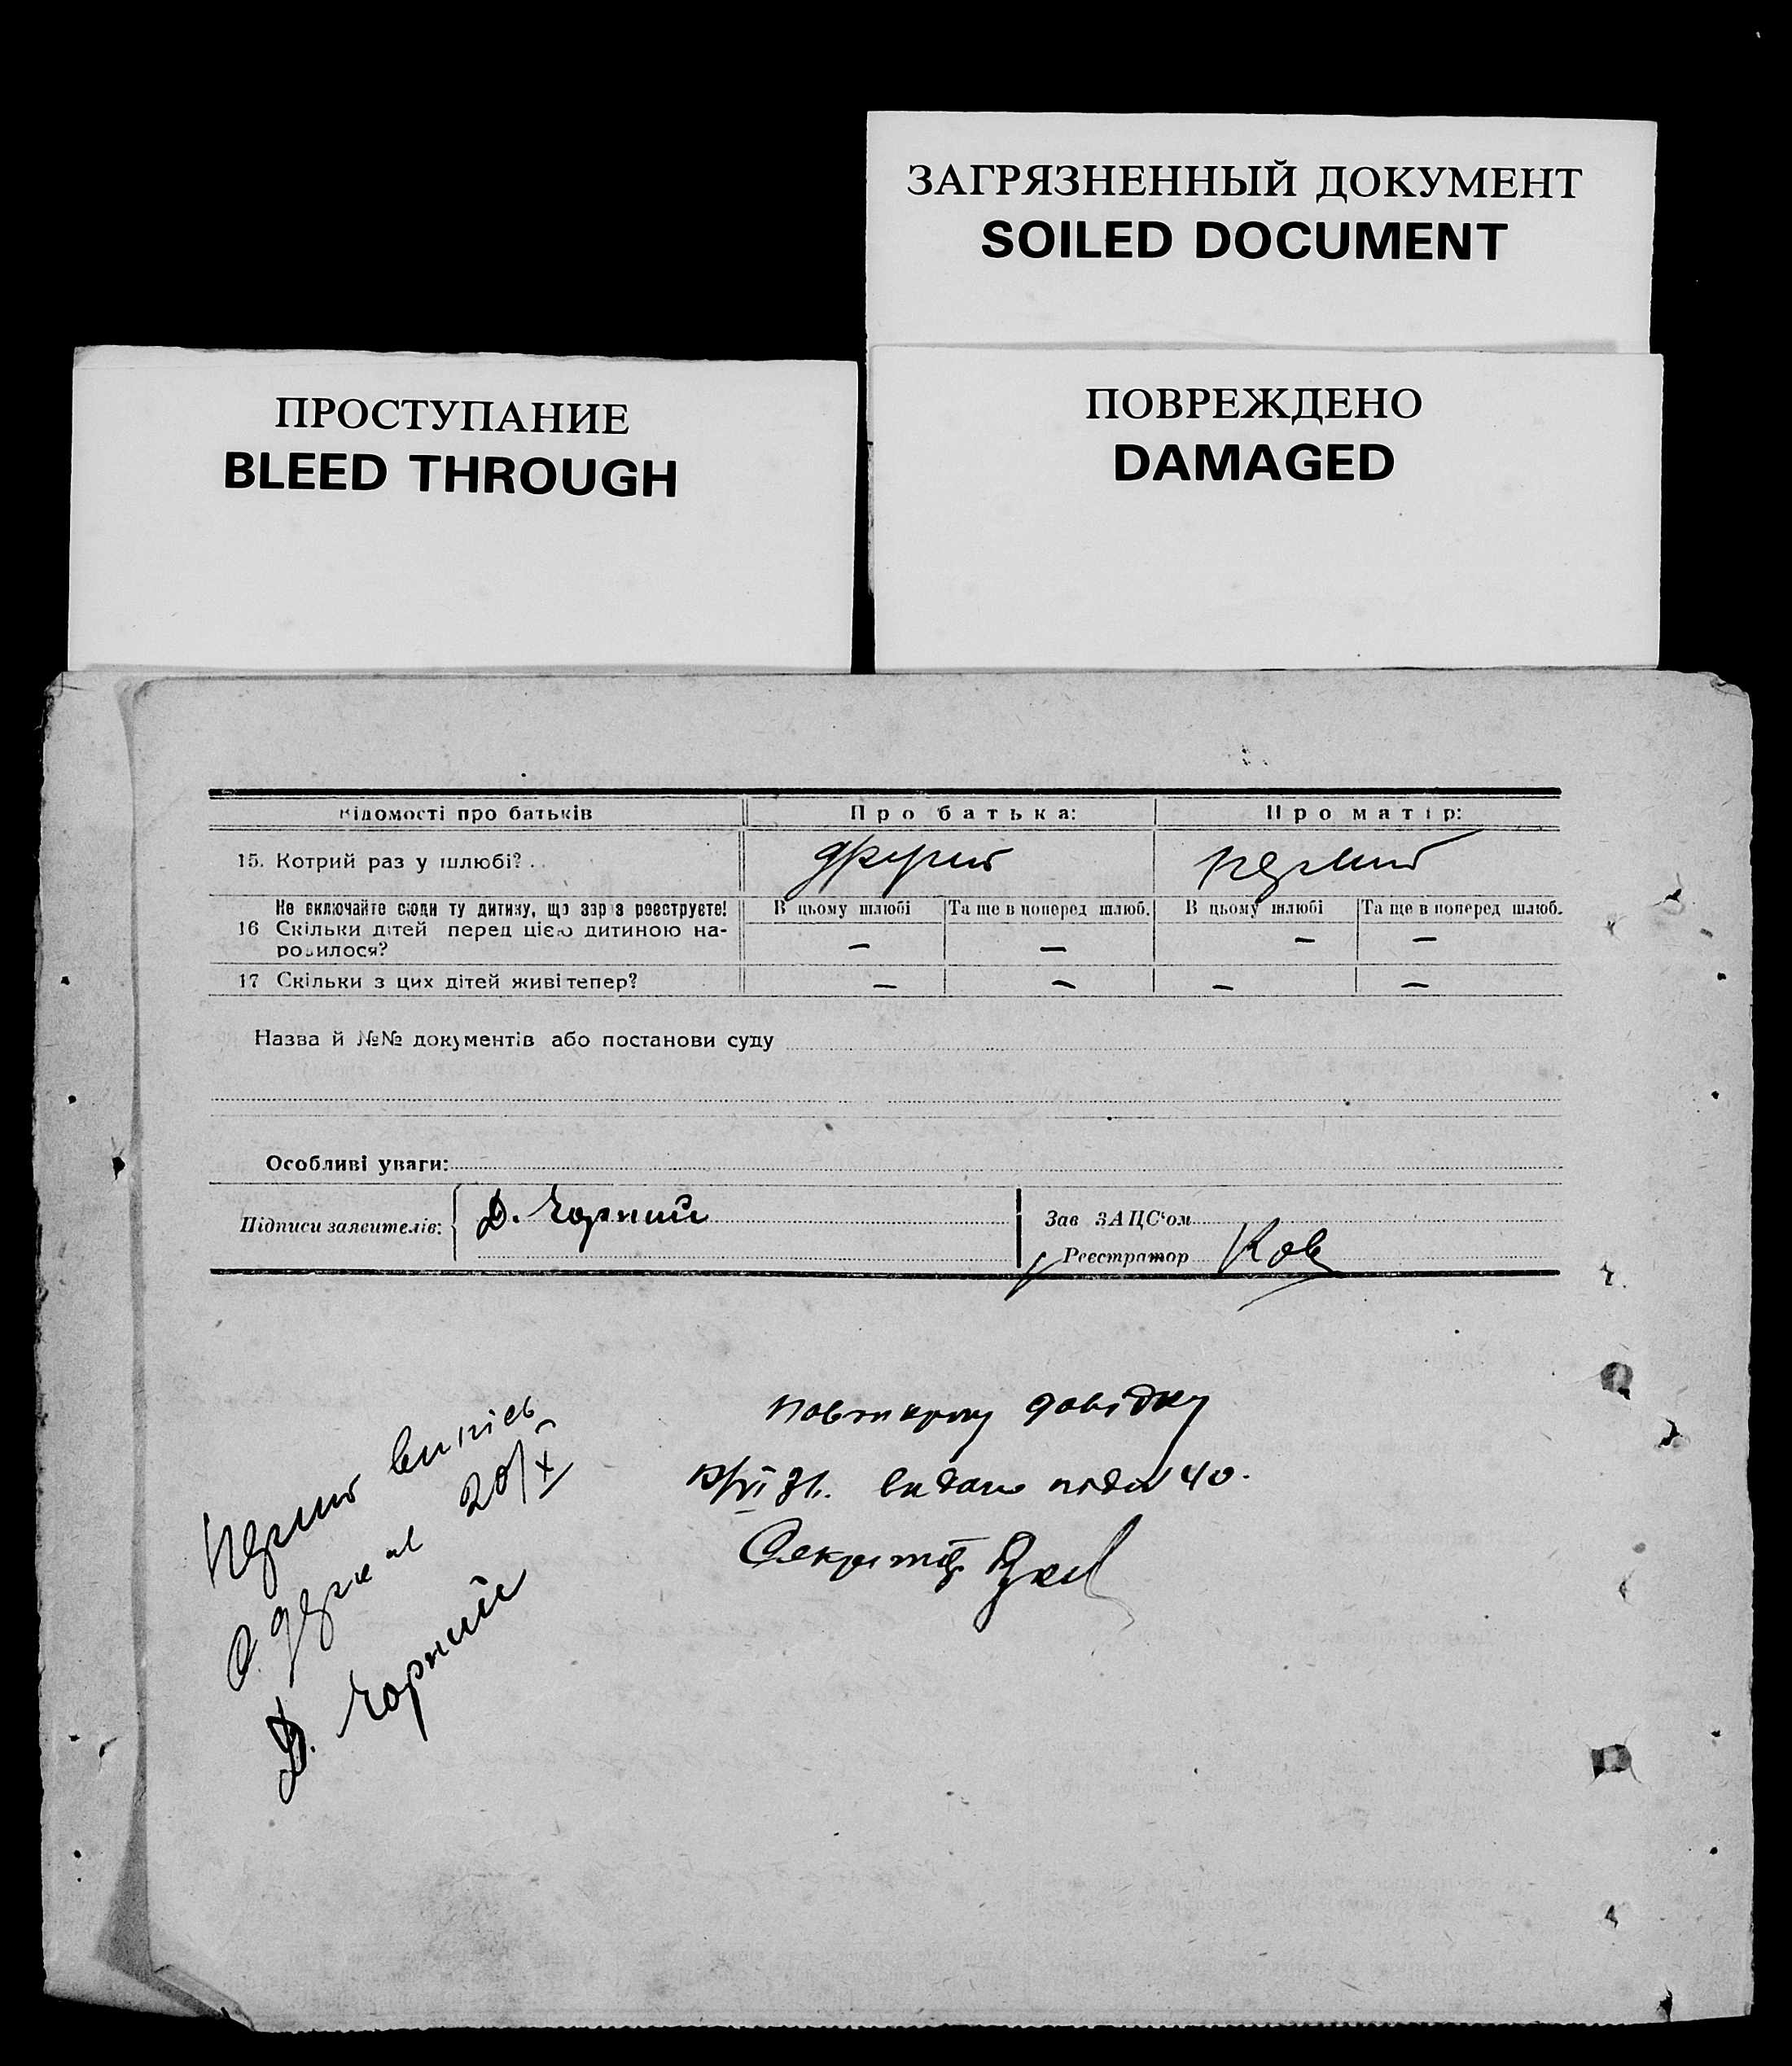 ЗАГРЯЗНЕННЫЙ ДОКУМЕНТ
SOILED DOCUMENT
ПРОСТУПАНИЕ
BLEED THROUGH
ПОВРЕЖДЕНО
DAMAGED
Відомості про батьків Про батька: Про матір:
15. Котрий раз у шлюбі? другий перший
Не включайте сюди ту дитину, що зараз реєструєте! В цьому шлюбі Та ще в поперед шлюб. В цьому шлюбі Та ще в поперед шлюб.
16 Скільки дітей перед цією дитиною на- — — — —
родилося?
17 Скільки з цих дітей живі тепер? — — — —
Назва й №№ документів або постанови суду
Особливі уваги:
Підписи заявителів: Д. Чорний Зав ЗАЦС'ом
Реєстратор Ков
Перший випись
одержав 20/X
Д. Чорний
Повторну довідку
видано 40.
Секретар